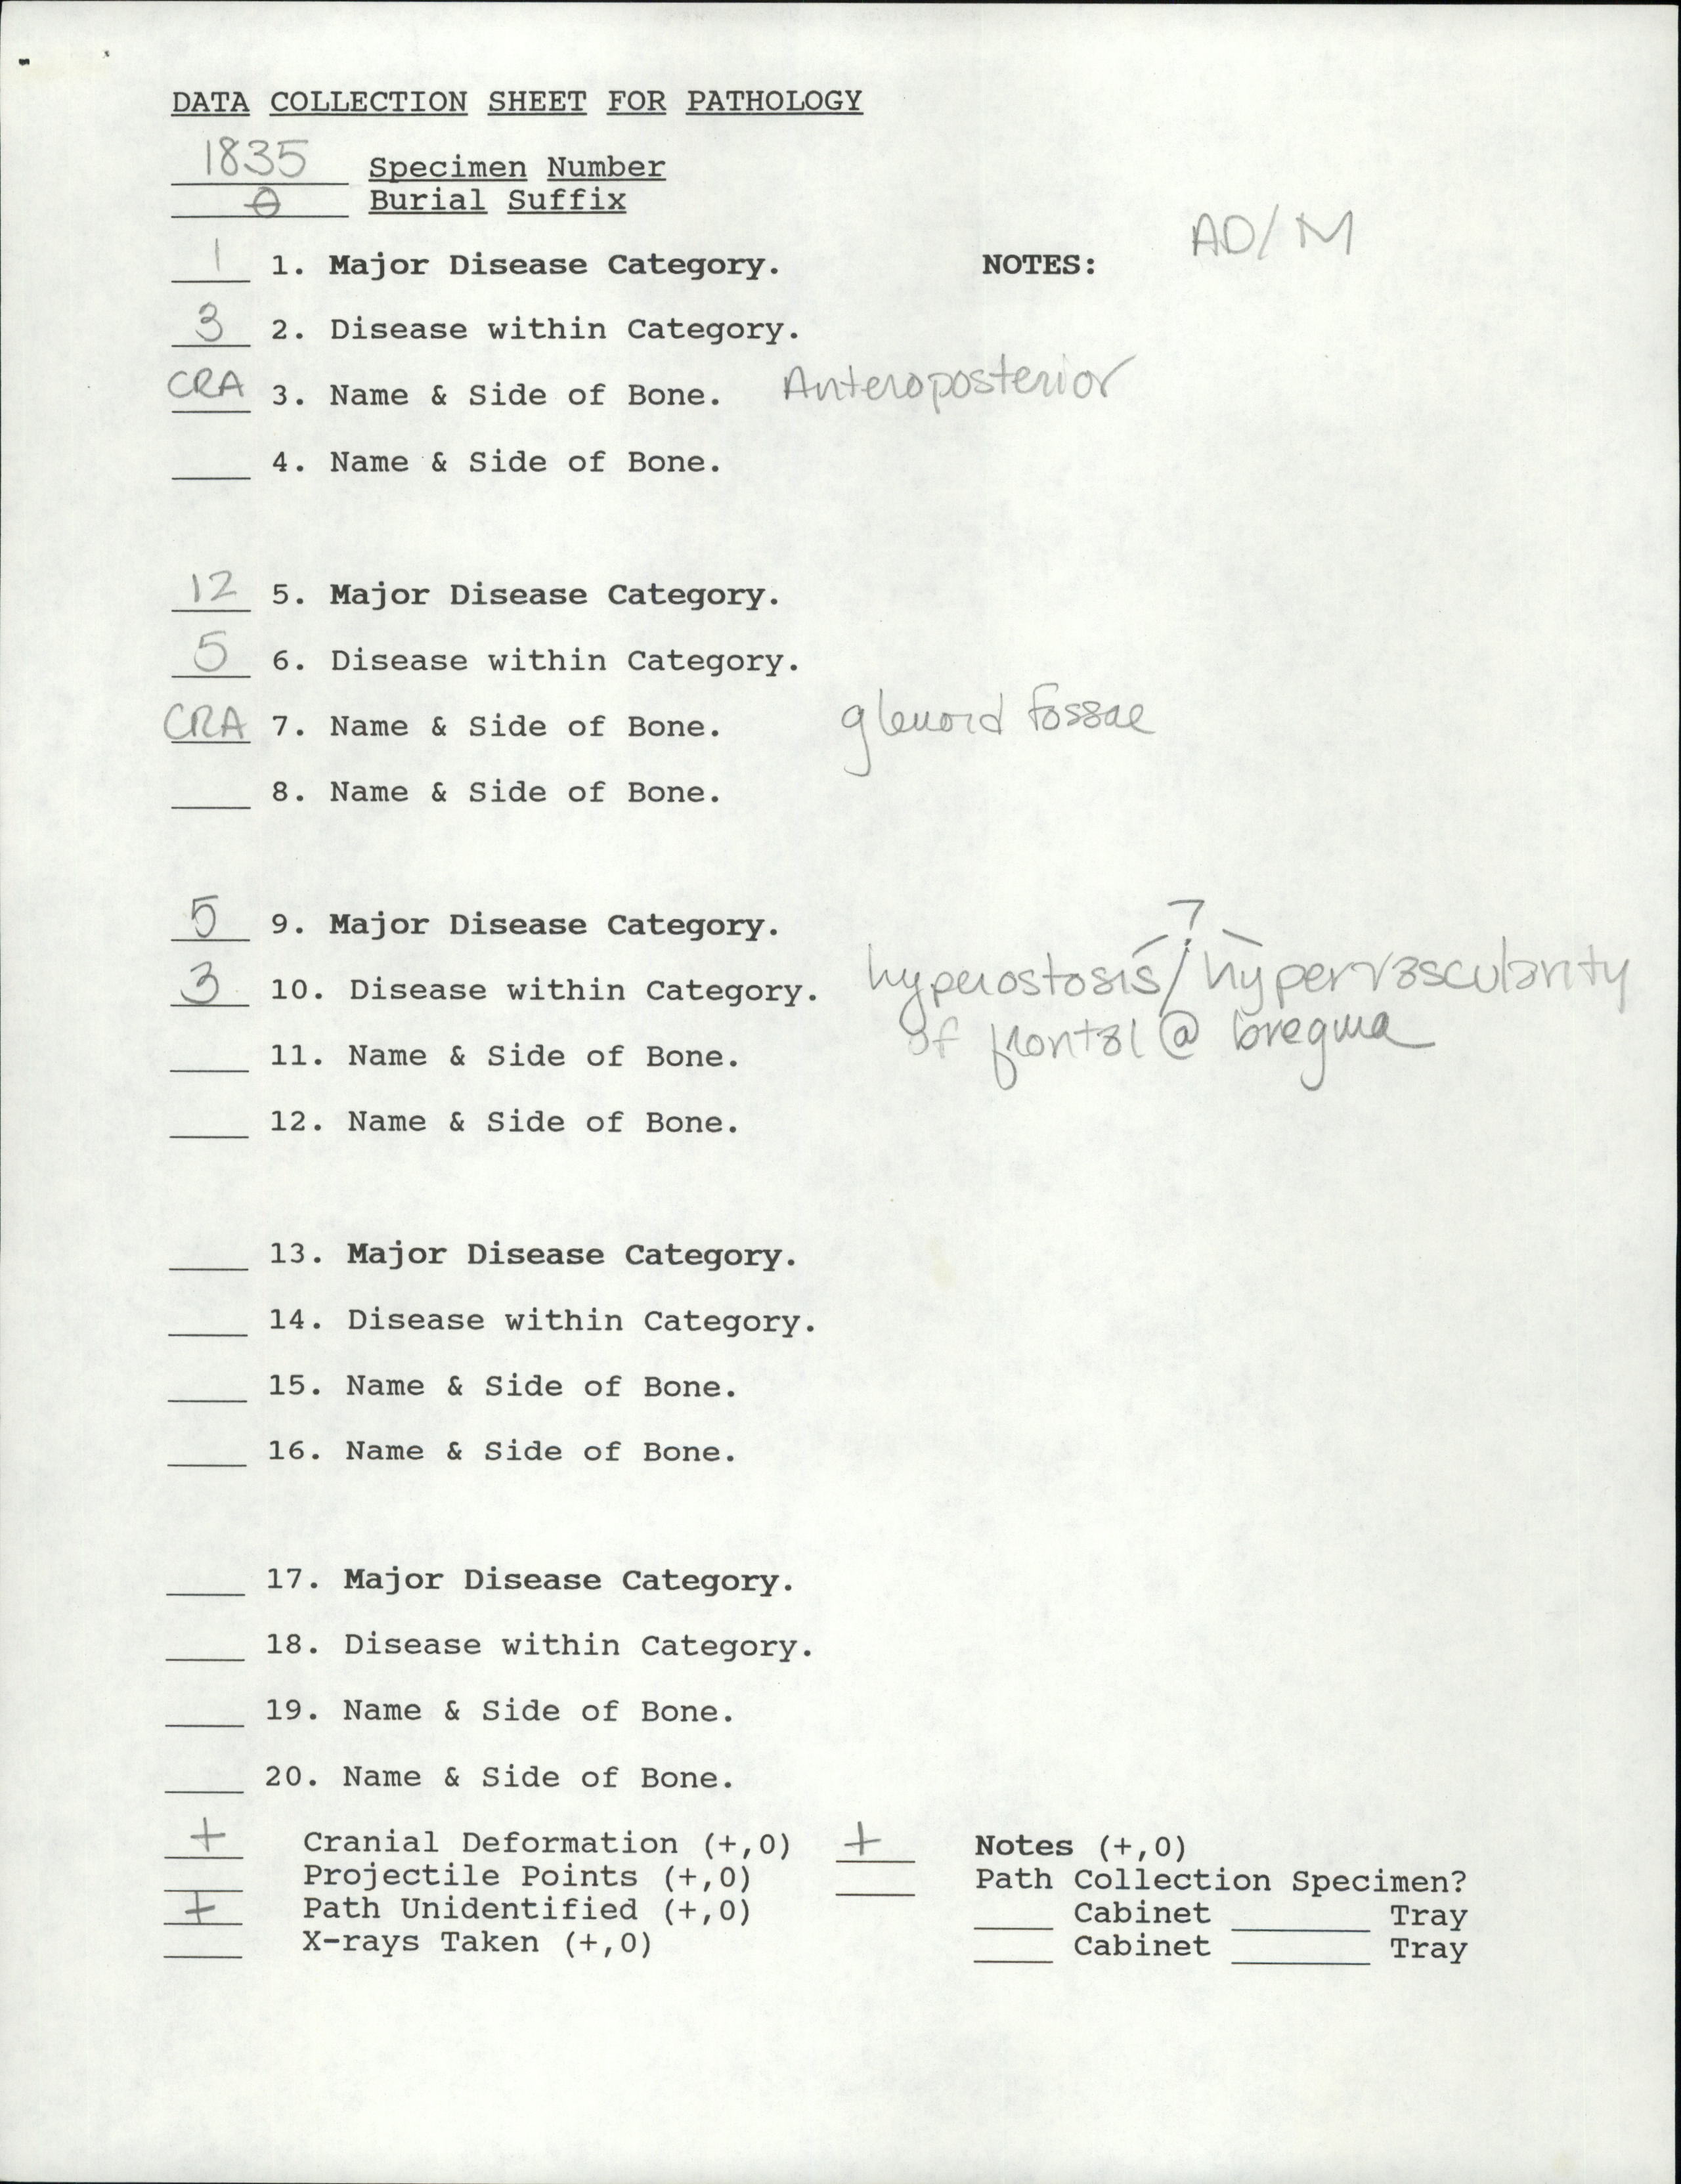 DATA COLLECTION SHEET FOR PATHOLOGY
1835 Specimen Number
0 Burial Suffix
AD/M
1 1. Major Disease Category. NOTES:
3 2. Disease within Category.
CRA 3. Name & Side of Bone. Anteroposterior
4. Name & Side of Bone.
12 5. Major Disease Category.
5 6. Disease within Category.
CRA 7. Name & Side of Bone. glenoid fossae
8. Name & Side of Bone.
5 9. Major Disease Category. ?
3 10. Disease within Category. hyperostosis/hypervascularity
of frontal @ bregma
11. Name & Side of Bone.
12. Name & Side of Bone.
13. Major Disease Category.
14. Disease within Category.
15. Name & Side of Bone.
16. Name & Side of Bone.
17. Major Disease Category.
18. Disease within Category.
19. Name & Side of Bone.
20. Name & Side of Bone.
+ Cranial Deformation (+,0) + Notes (+,0)
Projectile Points (+,0) Path Collection Specimen?
+ Path Unidentified (+,0) Cabinet Tray
X-rays Taken (+,0) Cabinet Tray